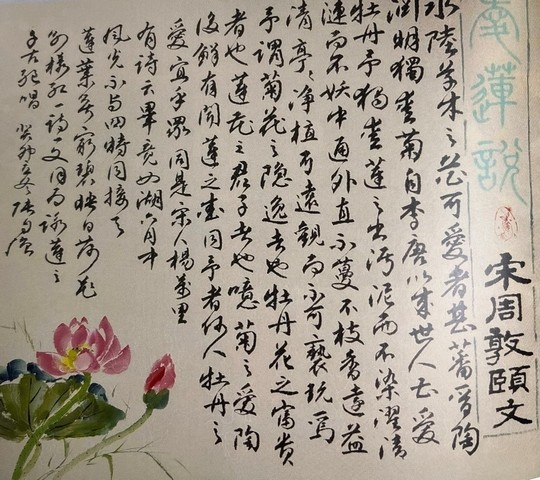 愛蓮說
宋周敦頤文
水陸草木之花可愛者甚蕃晋陶
渊明獨愛菊自李唐以来世人甚愛
牡丹予獨愛蓮之出污泥而不染濯清
漣而不妖中通外直不蔓不枝香遠益
清亭々净植可遠觀而不可亵玩焉
予謂菊花之隐逸者也牡丹花之富貴
者也蓮花之君子者也噫菊之愛陶
後鲜有聞蓮之愛同予者何人牡丹之
愛宜乎眾同是宋人楊萬里
有诗云畢竟西湖六月中
風光不与四時同接天
蓮葉無窮碧映日荷花
别樣红一诗一文同为詠蓮之
千古绝唱 癸卯冬